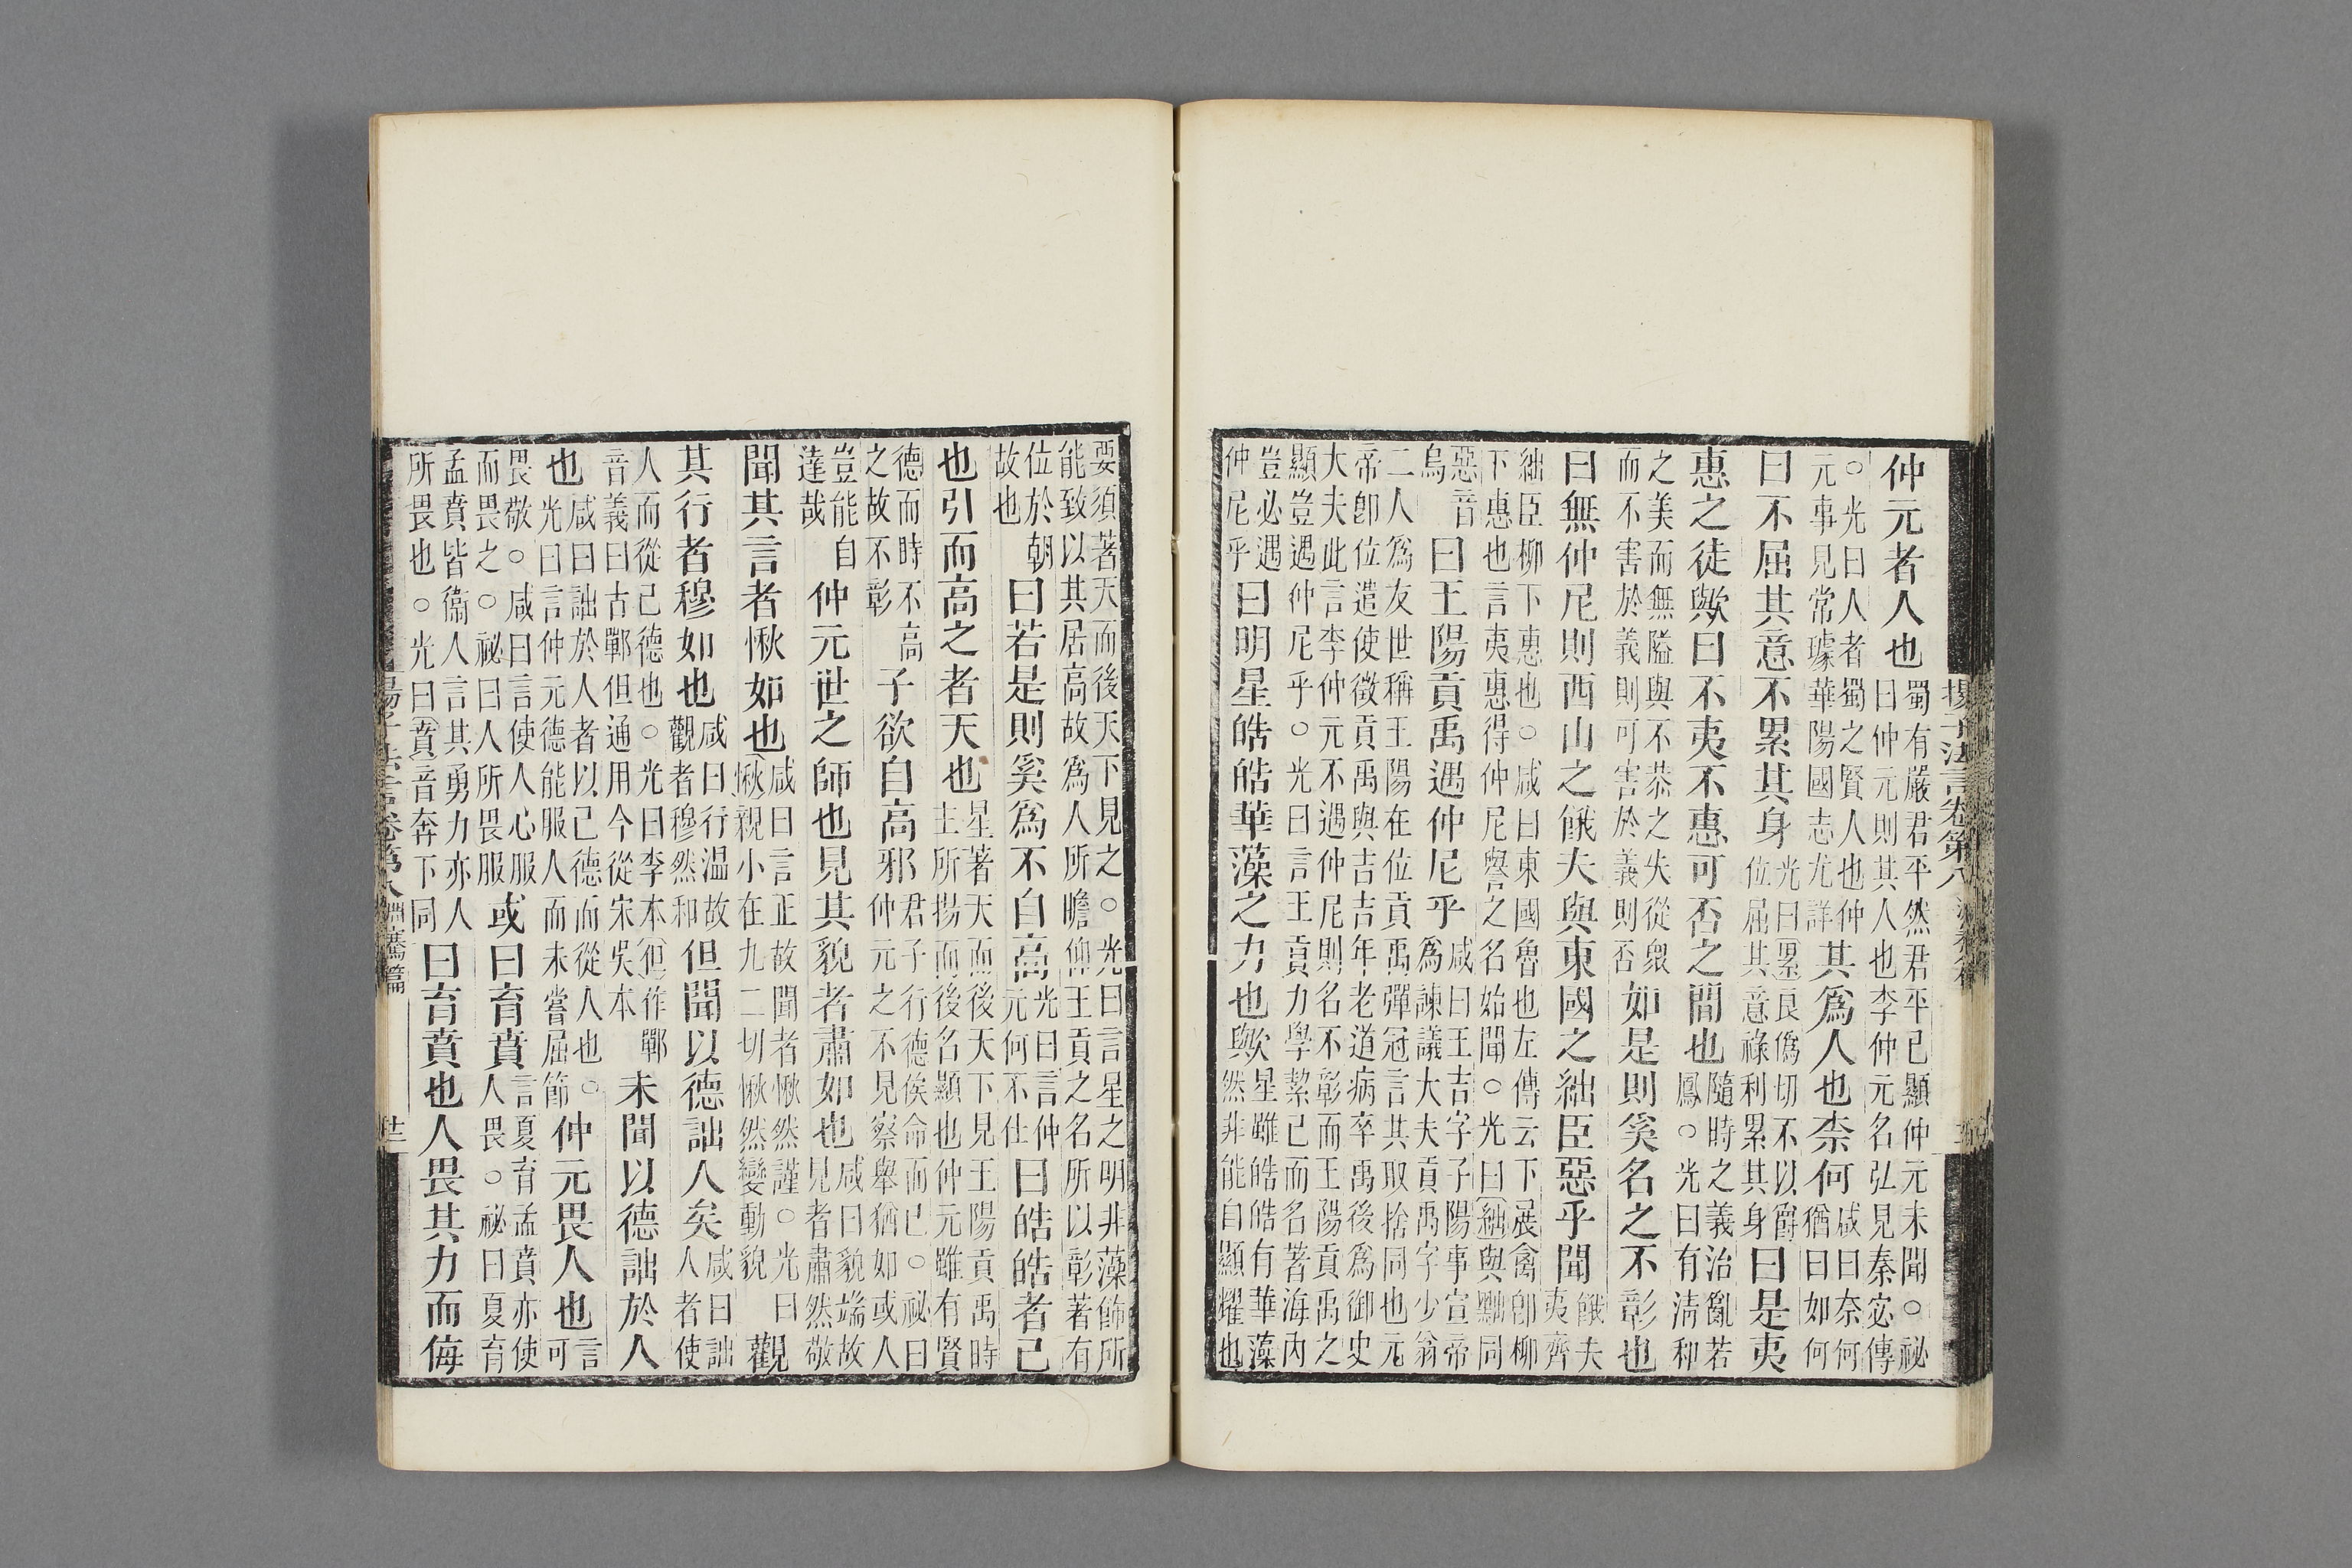 揚子法言卷第八
仲元者人也 蜀有嚴君平然君平已顯仲元未聞○祕
曰仲元則其人也李仲元名弘見秦宓傳
○光曰人者蜀之賢人也仲
元事見常璩華陽國志尤詳 其爲人也柰何 咸曰奈何
猶曰如何
曰不屈其意不累其身 光曰累良僞切不以爵
位屈其意祿利累其身 曰是夷
惠之徒歟曰不夷不惠可否之間也 隨時之義治亂若
鳳○光曰有淸和
之美而無隘與不恭之失從衆
而不害於義則可害於義則否 如是則奚名之不彰也
曰無仲尼則西山之餓夫與東國之絀臣惡乎聞 餓夫
夷齊
絀臣柳下惠也○咸曰東國魯也左傳云下展禽卽柳
下惠也言夷惠得仲尼譽之名始聞○光曰絀與黜同
惡音
烏 曰王陽貢禹遇仲尼乎 咸曰王吉字子陽事宣帝
爲諫議大夫貢禹字少翁
二人爲友世稱王陽在位貢禹彈冠言其取捨同也元
帝卽位遣使徵貢禹與吉吉年老道病卒禹後爲御史
大夫此言李仲元不遇仲尼則名不彰而王陽貢禹之
顯豈遇仲尼乎○光曰言王貢力學絜己而名著海內
豈必遇
仲尼乎 曰明星皓皓華藻之力也歟 星雖皓皓有華藻
然非能自顯燿也
要須著天而後天下見之○光曰言星之明非藻飾所
能致以其居高故爲人所瞻仰王貢之名所以彰著有
位於朝
故也 曰若是則奚爲不自高 光曰言仲
元何不仕 曰皓皓者己
也引而高之者天也 星著天而後天下見王陽貢禹時
主所揚而後名顯也仲元雖有賢
德而時不高
之故不彰 子欲自高邪 君子行德俟命而已○祕曰
仲元之不見察舉猶如或人
豈能自
達哉 仲元世之師也見其貌者肅如也 咸曰貌端故
見者肅然敬
聞其言者愀如也 咸曰言正故聞者愀然謹○光曰
愀親小在九二切愀然變動貌 觀
其行者穆如也 咸曰行温故
觀者穆然和 但聞以德詘人矣 咸曰詘
人者使
人而從己德也○光曰李本但作鄲
音義曰古鄲但通用今從宋吳本 未聞以德詘於人
也 咸曰詘於人者以己德而從人也○
光曰言仲元德能服人而未嘗屈節 仲元畏人也 言
可
畏敬○咸曰言使人心服
而畏之○祕曰人所畏服 或曰育賁 言夏育孟賁亦使
人畏○祕曰夏育
孟賁皆衞人言其勇力亦人
所畏也○光曰賁音奔下同 曰育賁也人畏其力而侮
揚子法言卷第八 淵騫篇 廿二